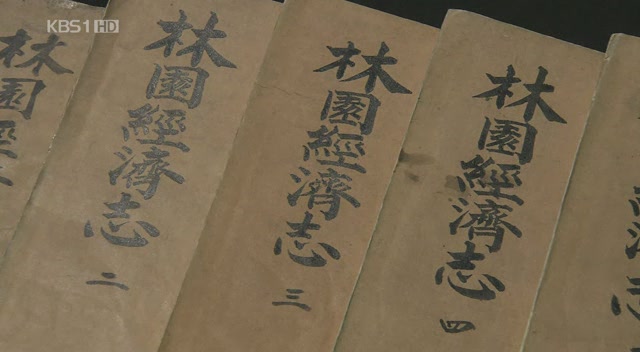 KBS1 HD
林園經
林園經濟志 二
林園經濟志 三
林園經濟志 四
濟志